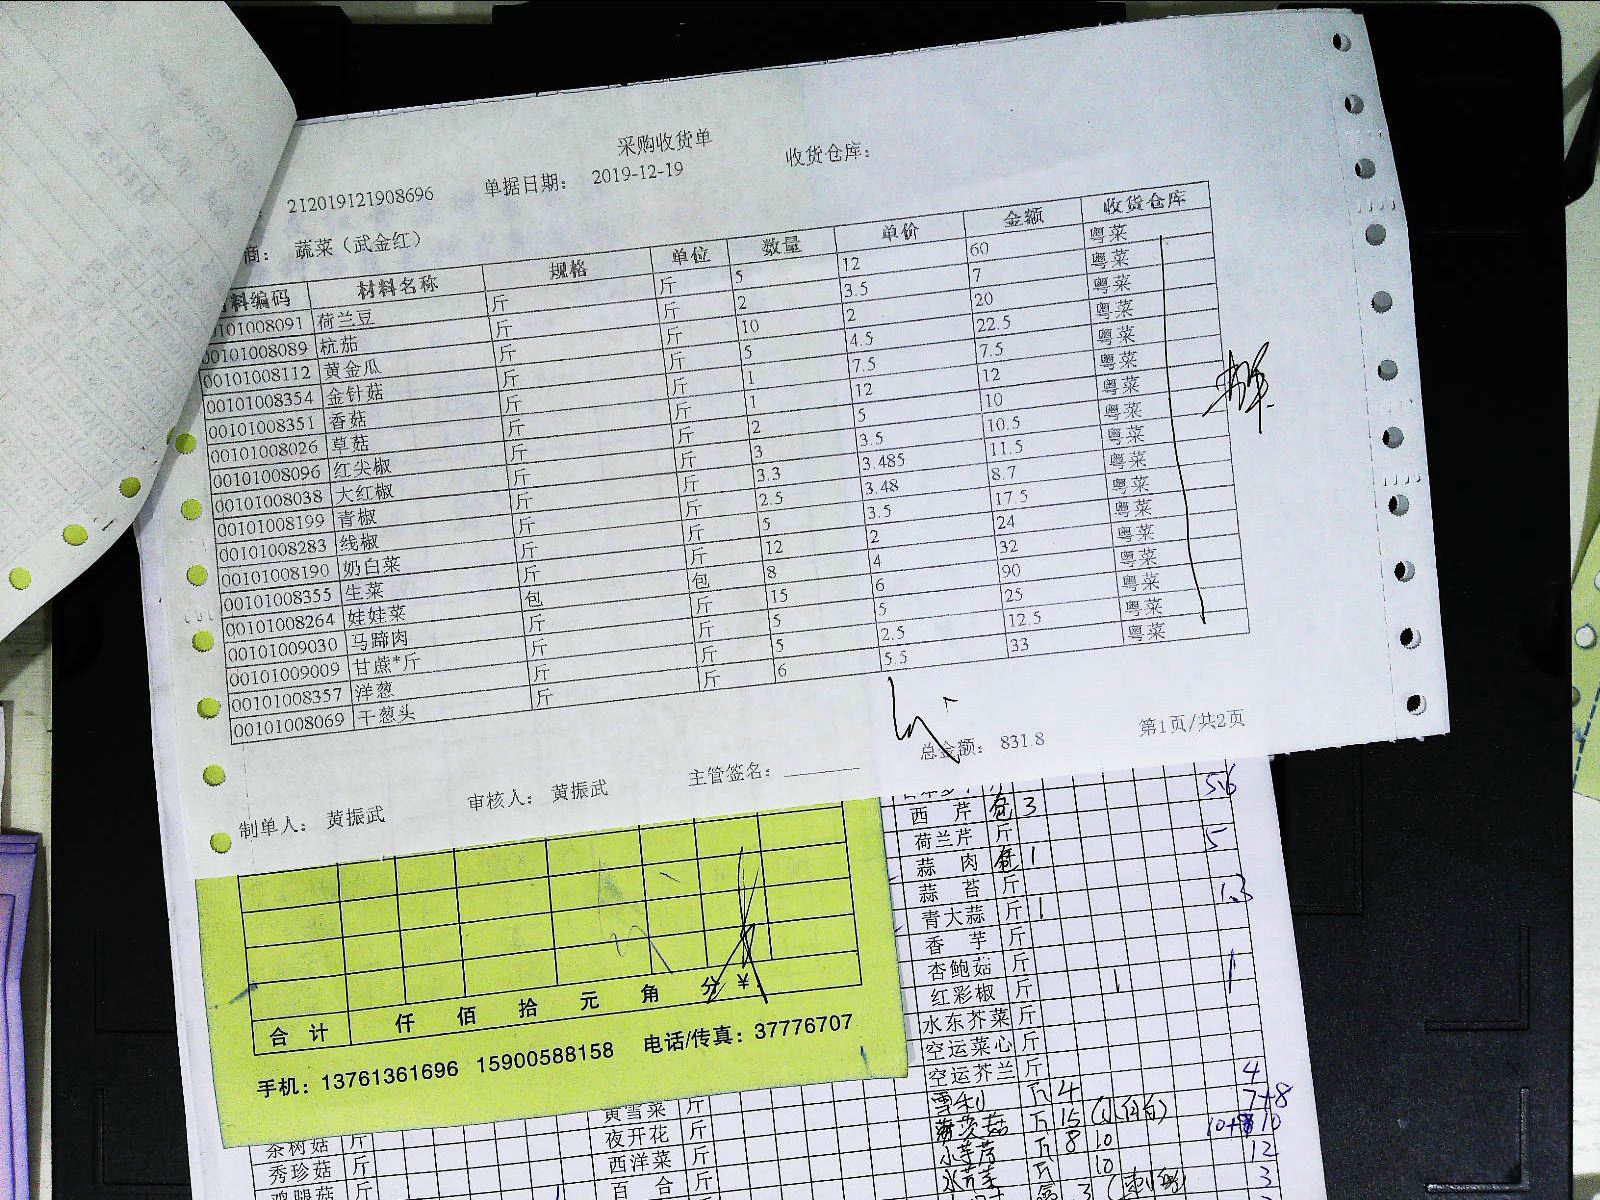 采购收货单
212019121908696 单据日期: 2019-12-19 收货仓库:
商: 蔬菜 (武金红)
料编码 材料名称 规格 单位 数量 单价 金额 收货仓库
0101008091 荷兰豆 斤 斤 5 12 60 粤菜
00101008089 杭茄 斤 斤 2 3.5 7 粤菜
00101008112 黄金瓜 斤 斤 10 2 20 粤菜
00101008354 金针菇 斤 斤 5 4.5 22.5 粤菜
00101008351 香菇 斤 斤 1 7.5 7.5 粤菜
00101008026 草菇 斤 斤 1 12 12 粤菜
00101008096 红尖椒 斤 斤 2 5 10 粤菜
00101008038 大红椒 斤 斤 3 3.5 10.5 粤菜
00101008199 青椒 斤 斤 3.3 3.485 11.5 粤菜
00101008283 线椒 斤 斤 2.5 3.48 8.7 粤菜
00101008190 奶白菜 斤 斤 5 3.5 17.5 粤菜
00101008355 生菜 斤 斤 12 2 24 粤菜
00101008264 娃娃菜 包 包 8 4 32 粤菜
00101009030 马蹄肉 斤 斤 15 6 90 粤菜
00101009009 甘蔗*斤 斤 斤 5 5 25 粤菜
00101008357 洋葱 斤 斤 5 2.5 12.5 粤菜
00101008069 干葱头 斤 斤 6 5.5 33 粤菜
总金额: 831.8 第1页/共2页
制单人: 黄振武 审核人: 黄振武 主管签名:
合计 仟 佰 拾 元 角 分 ¥:
手机: 13761361696 15900588158 电话/传真: 37776707
西芹 3
荷兰芹 斤
蒜肉 1
蒜苔 斤
青大蒜 斤 1
香芋 斤
杏鲍菇 斤
红彩椒 斤 1 1
水东芥菜 斤
空运菜心 斤
空运芥兰 斤 4
黄雪菜 斤
茶树菇 斤 夜开花 斤
秀珍菇 斤 西洋菜 斤
鸡腿菇 斤 百合 斤